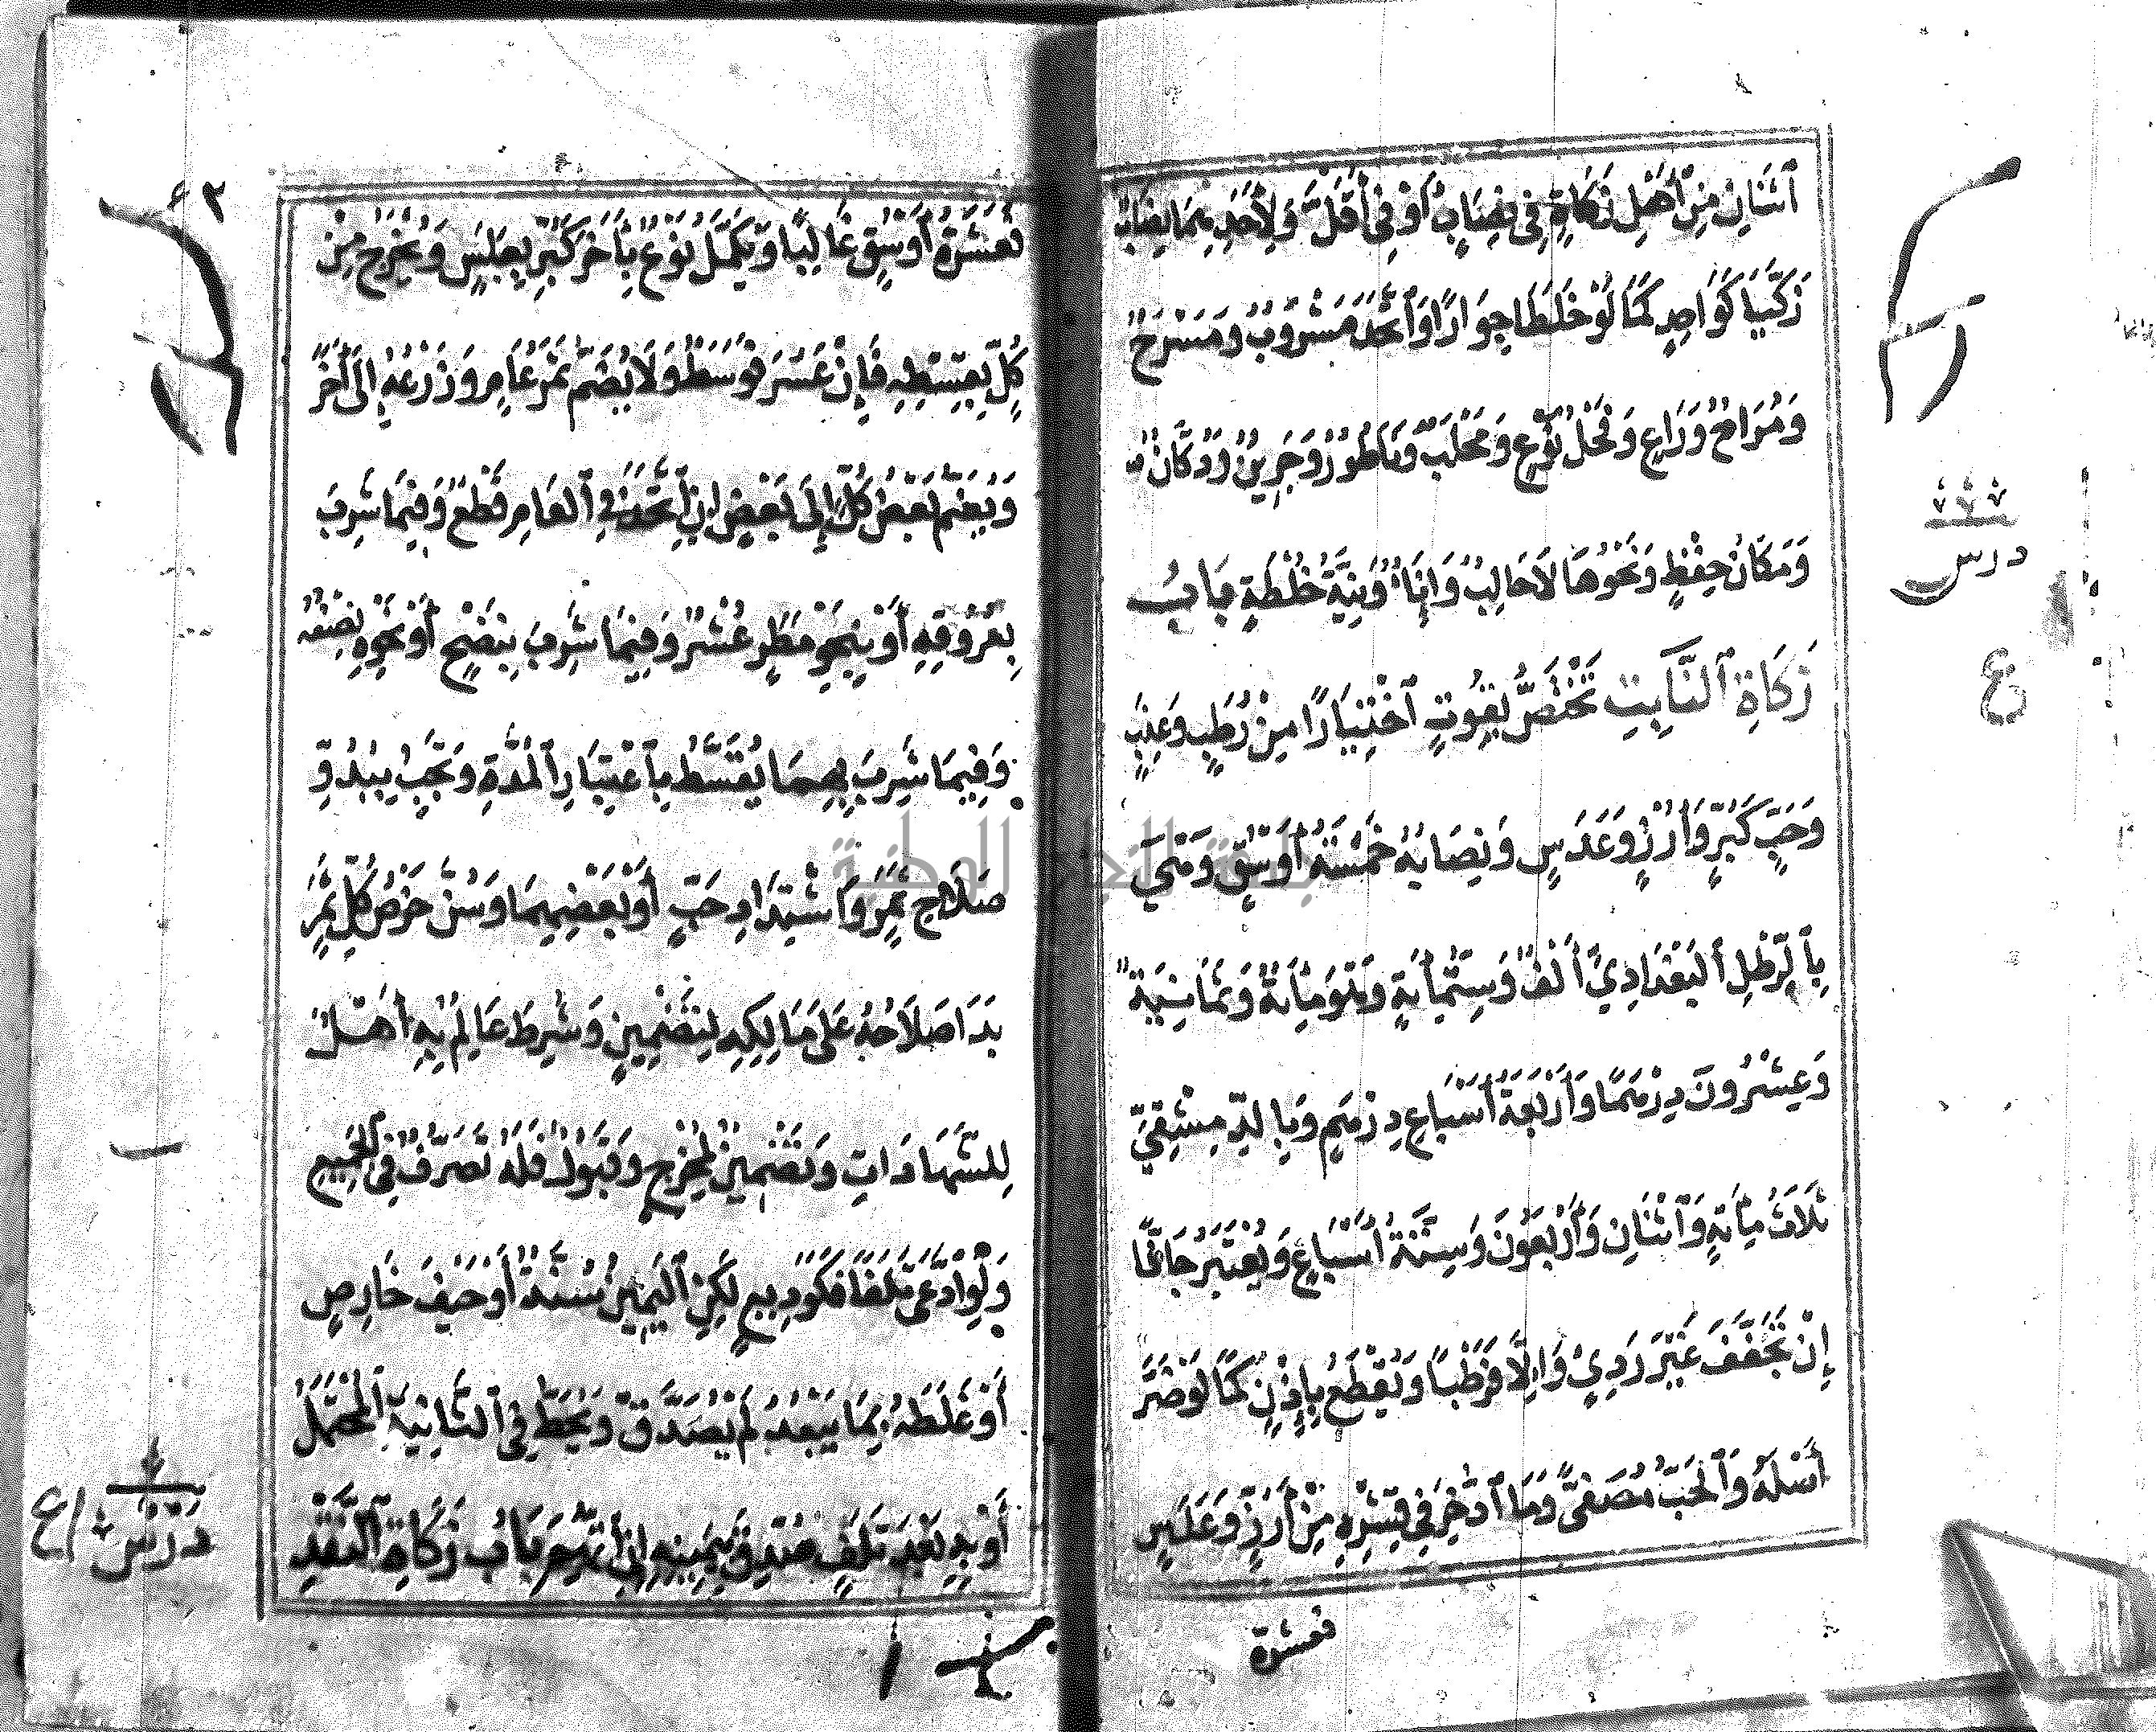 ٱثْنَانِ مِنْ أَهْلِ زَكَاةٍ فِي نِصَابٍ أَوْ فِي أَقَلَّ وَلِأَحَدِهِمَا نِصَابٌ
زَكَّيَا كَوَاحِدٍ كَمَا لَوْ خَلَطَا جِوَارًا وَٱتَّحَدَ مَشْرُوبٌ وَمَسْرَحٌ
وَمُرَاحٌ وَرَاعٍ وَفَحْلُ نَوْعٍ وَمَحْلَبٌ وَنَاطُورٌ وَجَرِينٌ وَدُكَّانٌ
وَمَكَانُ حِفْظٍ وَنَحْوُهَا لَا حَالِبٌ وَإِنَاءٌ وَنِيَّةُ خُلْطَةٍ بَابُ
زَكَاةِ ٱلنَّابِتِ تَخْتَصُّ بِقُوتٍ ٱخْتِيَارًا مِنْ رُطَبٍ وَعِنَبٍ
وَحَبٍّ كَبُرٍّ وَأَرُزٍّ وَعَدَسٍ وَنِصَابُهُ خَمْسَةُ أَوْسُقٍ وَهِيَ
بِٱلرِّطْلِ ٱلبَغْدَادِيِّ أَلْفٌ وَسِتُّمِائَةٍ وَثَمَانِيَةٌ
وَعِشْرُونَ دِرْهَمًا وَأَرْبَعَةُ أَسْبَاعِ دِرْهَمٍ وَبِالدِّمِشْقِيِّ
ثَلَاثُ مِائَةٍ وَٱثْنَانِ وَأَرْبَعُونَ وَسِتَّةُ أَسْبَاعٍ وَيُعْتَبَرُ جَافًّا
إِنْ تَجَفَّفَ غَيْرَ رَدِيءٍ وَإِلَّا فَرَطْبًا وَيُقْطَعُ بِإِذْنٍ كَمَا لَوْ ضَرَّ
أَصْلَهُ وَٱلْحَبُّ مُصَفًّى وَمَا ٱدُّخِرَ فِي قِشْرِهِ مِنْ أَرُزٍّ وَعَلَسٍ
فعشرة
درس
ع
٦٢
فَعَشَرَةُ أَوْسُقٍ غَالِبًا وَيُكَمَّلُ نَوْعٌ بِآخَرَ كَبُرٍّ بِعَلَسٍ وَيُخْرَجُ مِنْ
كُلٍّ بِقِسْطِهِ فَإِنْ عَسُرَ فَوَسَطٌ وَلَا يُضَمُّ ثَمَرُ عَامٍ وَزَرْعُهُ إِلَى آخَرَ
وَيُضَمُّ بَعْضُ كُلٍّ إِلَى بَعْضٍ إِنِ ٱتَّحَدَ فِي ٱلعَامِ قَطْعٌ وَفِيمَا شَرِبَ
بِعُرُوقِهِ أَوْ بِنَحْوِ مَطَرٍ عُشْرٌ وَفِيمَا شَرِبَ بِنَضْحٍ أَوْ نَحْوِهِ نِصْفُهُ
وَفِيمَا شَرِبَ بِهِمَا يُقَسَّطُ بِٱعْتِبَارِ ٱلْمُدَّةِ وَتَجِبُ بِبُدُوِّ
صَلَاحِ ثَمَرٍ وَٱشْتِدَادِ حَبٍّ أَوْ بَعْضِهِمَا وَسُنَّ خَرْصُ كُلِّ ثَمَرٍ
بَدَا صَلَاحُهُ عَلَى مَالِكِهِ لِتَضْمِينٍ وَشُرِطَ عَالِمٌ بِهِ أَهْلٌ
لِلشَّهَادَاتِ وَتَضْمِينٌ لِمُخْرِجٍ وَقَبُولٌ فَلَهُ تَصَرُّفٌ فِي ٱلْجَمِيعِ
وَلَوِ ادَّعَى تَلَفًا فَكَوَدِيعٍ لَكِنِ ٱليَمِينُ سُنَّةٌ أَوْ حَيْفَ خَارِصٍ
أَوْ غَلَطَهُ بِمَا يَبْعُدُ لَمْ يُصَدَّقْ وَيُحَطُّ فِي ٱلثَّانِيَةِ ٱلْمُحْتَمَلُ
أَوْ بِهِ بَعْدَ تَلَفٍ صُدِّقَ بِيَمِينِهِ إِنِ ٱتُّهِمَ بَابُ زَكَاةِ ٱلنَّقْدِ
درس
ع
جامعة النجاح الوطنية